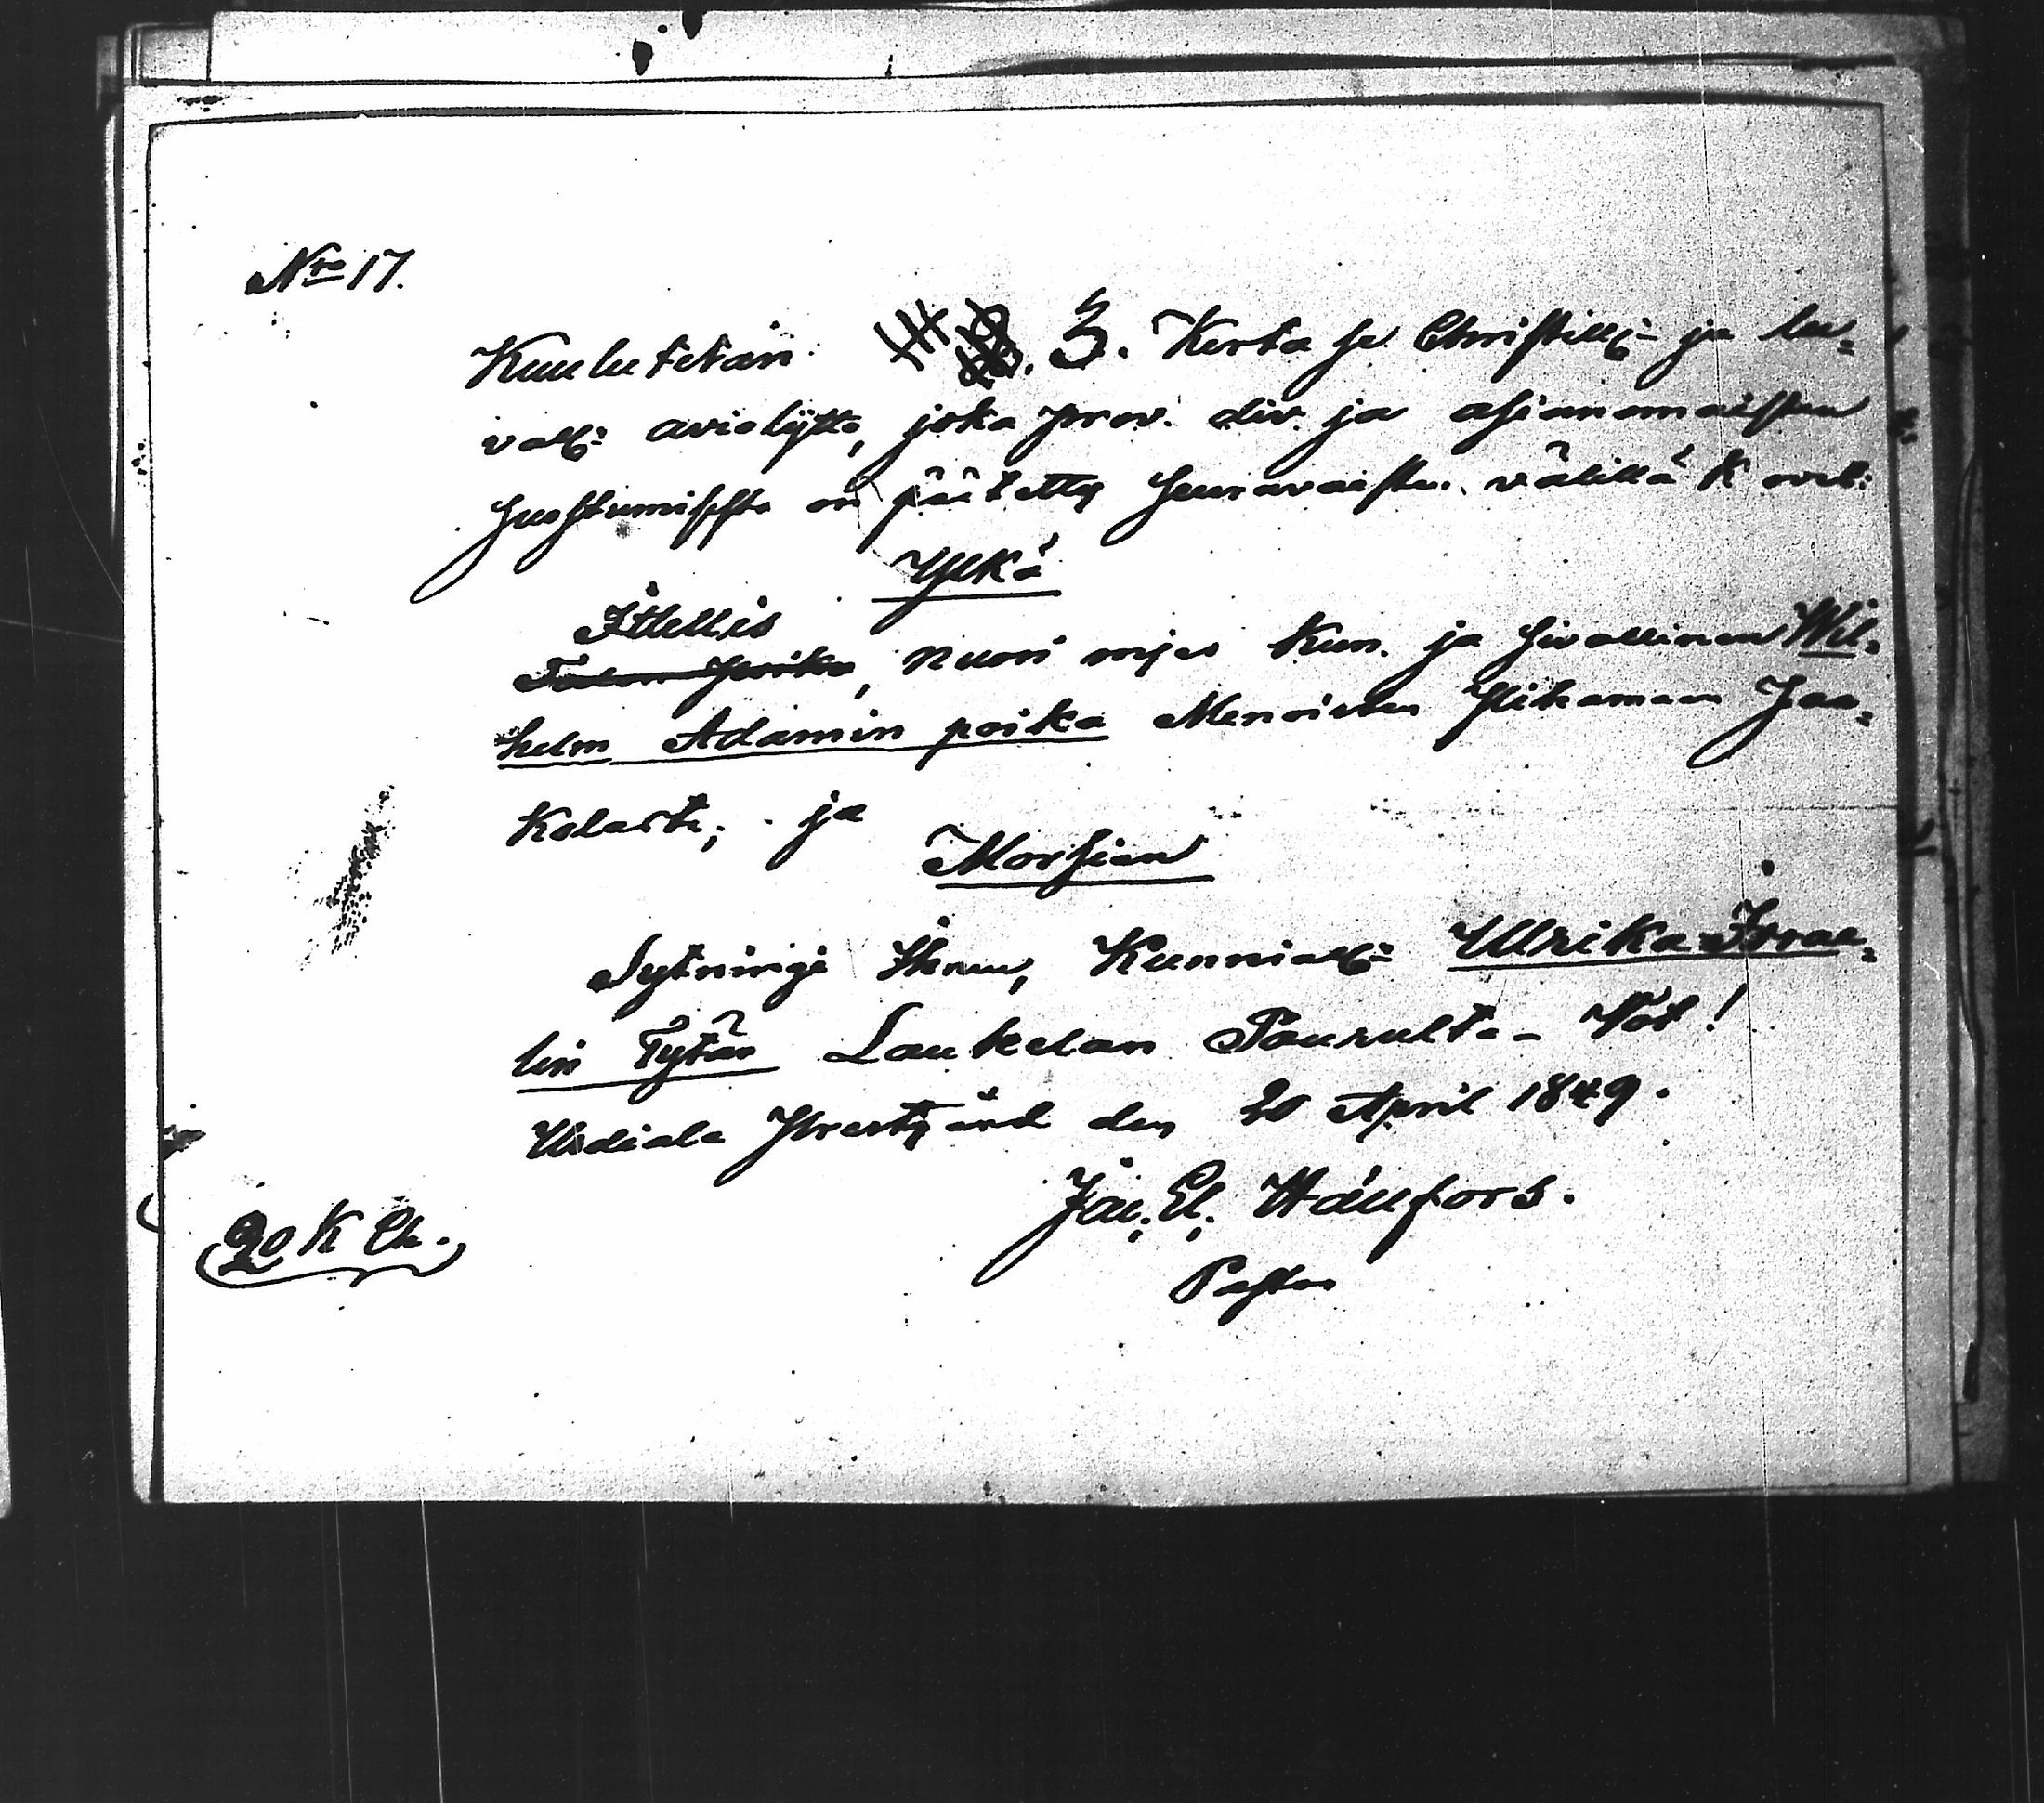 Nro 17.
Kuulutetan 3. Kerta se Christill: ja lu=
vall: aviolijtto, joka prov. div. ja asianomaisten
suostumisesta on päätetty seuravaisten välillä K ovat:
Ylkä
Itellis
Talon poika, nuori mjes kun. ja sivallinen Wil=
helm Adamin poika Menoisten Jaa=
kolasta; ja
Morsian
Sytningi Kunniall: Ulrika Israe=
lin Tytär Laukelan Paurulta - Vot!
Urdiala Prestgård den 20 April 1849.
Joh. El. Hällfors.
Pastor
20 K Ch.